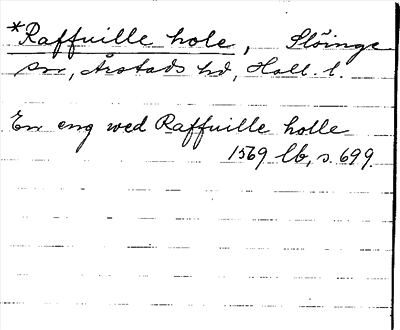 *Raffuille hole, Slöinge
sn, Årstads hd, Hall. l.
En eng wed Raffuille holle
1569 lb, s. 699.